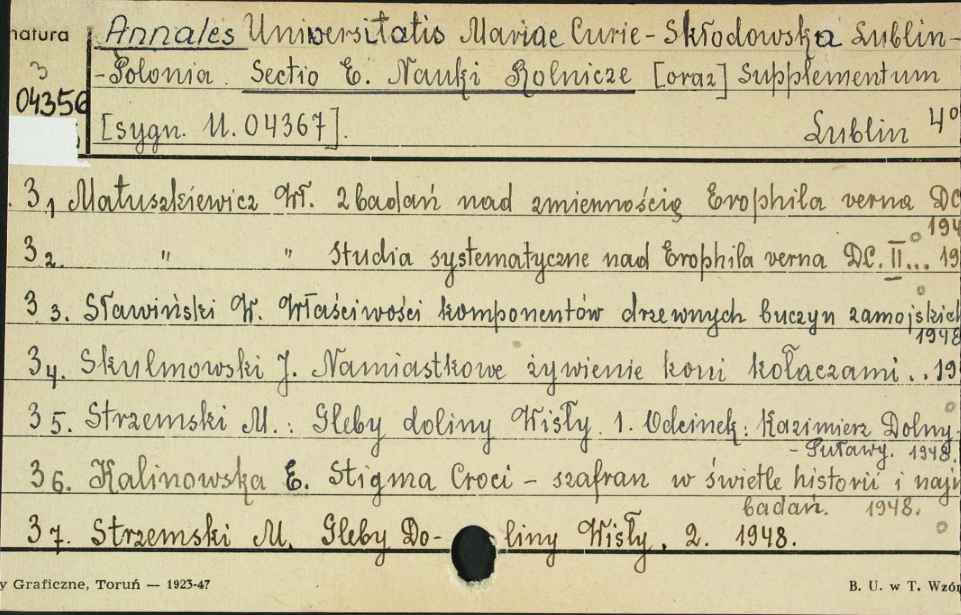 natura
3
04356
Annales Universitatis Mariae Curie-Skłodowska Lublin-
-Polonia. Sectio E. Nauki Rolnicze [oraz] Supplementum
[sygn. U. 04367]. Lublin 4°
3 1 Matuszkiewicz Wł. Z badań nad zmiennością Erophila verna DC
194
3 2. " " Studia systematyczne nad Erophila verna DC. II... 19
3 3. Sławiński W. Właściwości komponentów drzewnych buczyn zamojskich
1948
3 4. Skulmowski J. Namiastkowe żywienie koni kołaczami..19
3 5. Strzemski M.: Gleby doliny Wisły. 1. Odcinek: Kazimierz Dolny-
- Puławy. 1948.
3 6. Kalinowska E. Stigma Croci - szafran w świetle historii i najn
badań. 1948.
3 7. Strzemski M. Gleby Do- liny Wisły. 2. 1948.
y Graficzne, Toruń — 1923-47 B. U. w T. Wzór